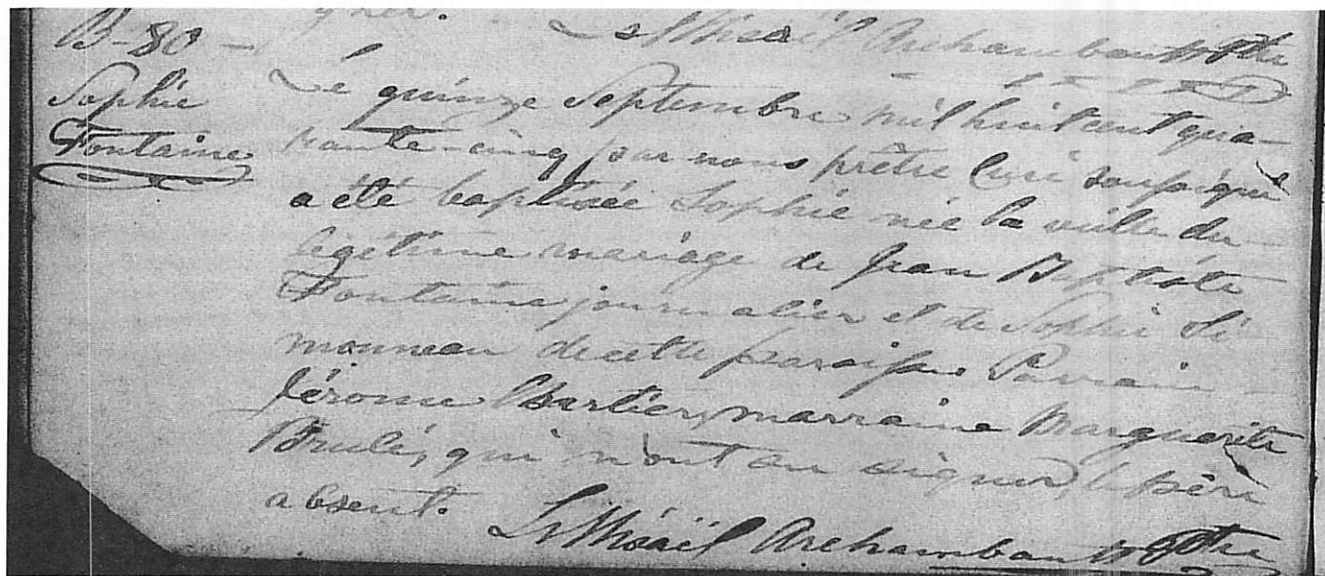 gner.
Ls Misaël Archambault Ptre
B-80-
Sophie
Fontaine
Le quinze Septembre mil huit cent qua-
rante-cinq par nous prêtre Curé soussigné
a été baptisée Sophie née la veille du
légitime mariage de Jean Baptiste
Fontaine journalier et de Sophie Si
monneau de cette paroisse Parrain
Jérome Chartier, marraine Marguerite
Brulé, qui n'ont su signer, le père
absent.
Ls Misaël Archambault Ptre